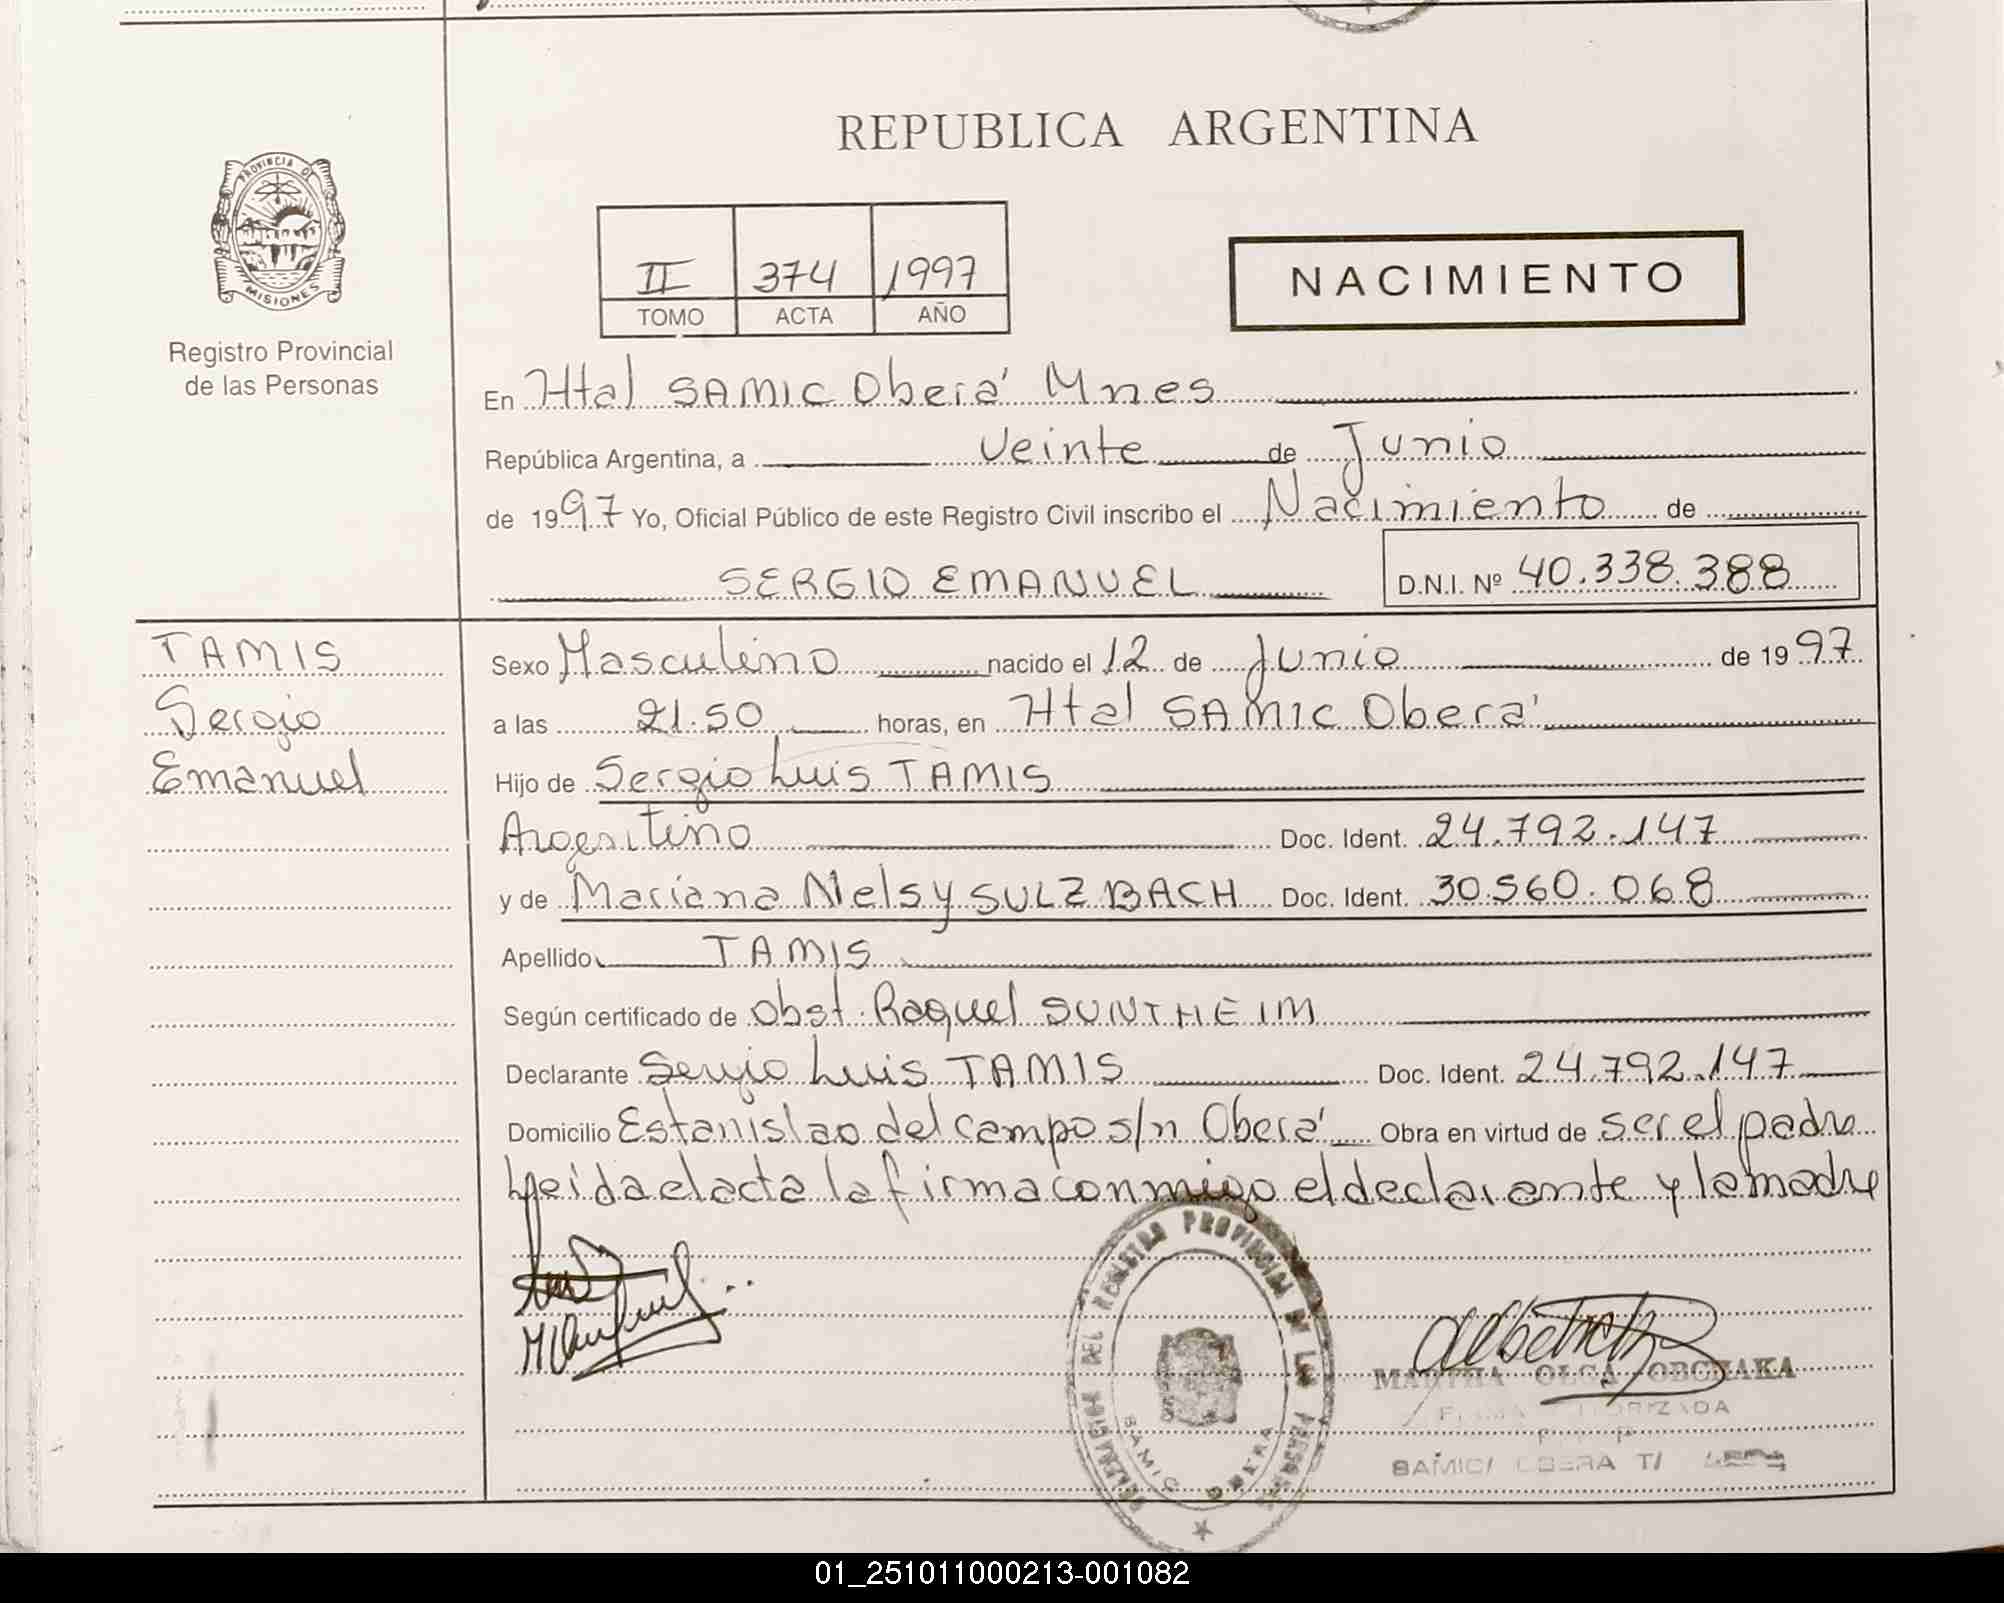 REPUBLICA ARGENTINA
PROVINCIA DE
MISIONES
Registro Provincial
de las Personas
II 374 1997
TOMO ACTA AÑO
NACIMIENTO
En Htal SAMIC Oberá Mnes
República Argentina, a veinte de Junio
de 1997 Yo, Oficial Público de este Registro Civil inscribo el Nacimiento de
SERGIO EMANUEL D.N.I. Nº 40.338.388
TAMIS
Sergio
Emanuel
Sexo Masculino nacido el 12 de Junio de 1997
a las 21.50 horas, en Htal SAMIC Oberá
Hijo de Sergio Luis TAMIS
Argentino Doc. Ident. 24.792.147
y de Mariana Nelsy SULZBACH Doc. Ident. 30.560.068
Apellido TAMIS
Según certificado de Obst. Raquel SUNTHEIM
Declarante Sergio Luis TAMIS Doc. Ident. 24.792.147
Domicilio Estanislao del Campo s/n Oberá Obra en virtud de ser el padre
Leida el acta la firma conmigo el declarante y la madre
DELEGACION DEL REGISTRO PROVINCIAL DE LAS PERSONAS
SAMIC OBERA
MARTHA OLGA OBCHAKA
SAMIC OBERA
01_251011000213-001082